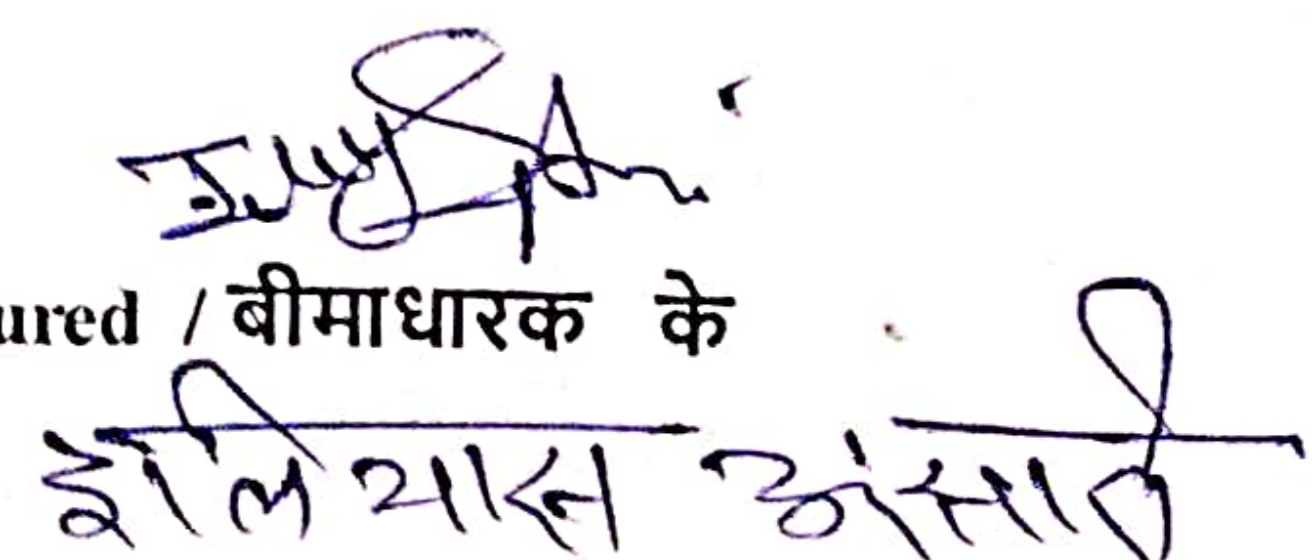 ured / बीमाधारक के
इलियास अंसारी